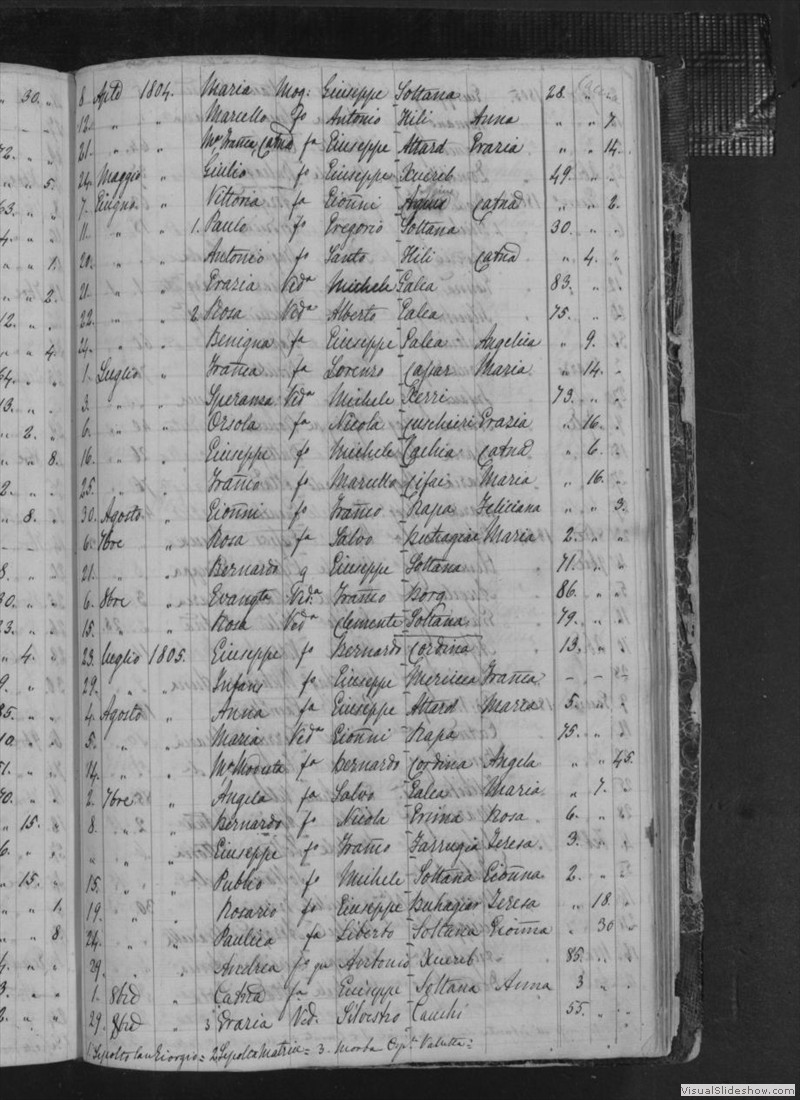 8. Aple 1804. Maria Mog: Giuseppe Soltana 28 " "
12. " " Marcello fo Antonio Hili Anna " " 7.
21. " " Ma Franca Catna fa Giuseppe Attard Grazia " " 14.
24. Maggio " Giulio fo Giuseppe Xuereb 49. " "
7. Giugno " Vittoria fa Gionni Catnd " " 2.
11. " " 1. Paulo fo Gregorio Soltana 30. " "
20. " " Antonio fo Santo Hili Catnd " 4. "
21. " " Grazia Veda Michele Galea 83. " "
22. " " 2 Rosa Veda Alberto Galea 75. " "
24. " " Benigna fa Giuseppe Galea Angelica " 9. "
1. Luglio " Franca fa Lorenzo Cassar Maria " 14. "
3. " " Speranza Veda Michele Ferri 73. " "
6. " " Orsola fa Nicola Cuschieri Grazia " 16. "
16. " " Giuseppe fo Michele Cachia Catnd " 6. "
25. " " Franco fo Marcello Cifai Maria " 16. "
30. Agosto " Gionni fo Franco Rapa Feliciana " " 3.
6. 7bre " Rosa fa Salvo Buttagiar Maria 2. " "
21. " " Bernardo q Giuseppe Soltana 71. " "
6. 8bre " Evangta Veda Franco Borg 86. " "
15. " " Rosa Veda Clemente Soltana 79. " "
23. Luglio 1805. Giuseppe fo Bernardo Cordina 13. " "
29. " " Infans fa Giuseppe Mercieca Franca - - -
4. Agosto " Anna fa Giuseppe Attard Maria 5. " "
5. " " Maria Veda Gionni Rapa 75. " "
14. " " Ma Modesta fa Bernardo Cordina Angela " " 45.
2. 7bre " Angela fa Salvo Galea Maria " 7. "
8. " " Bernardo fo Nicola Grima Rosa 6. "
" " " Giuseppe fo Franco Farrugia Teresa 3. "
15. " " Publio fo Michele Soltana Gionna 2. " "
19. " " Rosario fo Giuseppe Buhagiar Teresa " 18. "
24. " " Paulica fa Liberto Soltana Gionna " 30 "
29. " " Andrea fo qm Antonio Xuereb 85. " "
1. 8bre " Catnd fa Giuseppe Soltana Anna 3 " "
29. 8bre " 3 Grazia Ved. Silvestro Cauchi 55. " "
1. Sepolto San Giorgio = 2 Sepolta Matrice = 3. Morta Osple Valletta =
VisualSlideshow.com